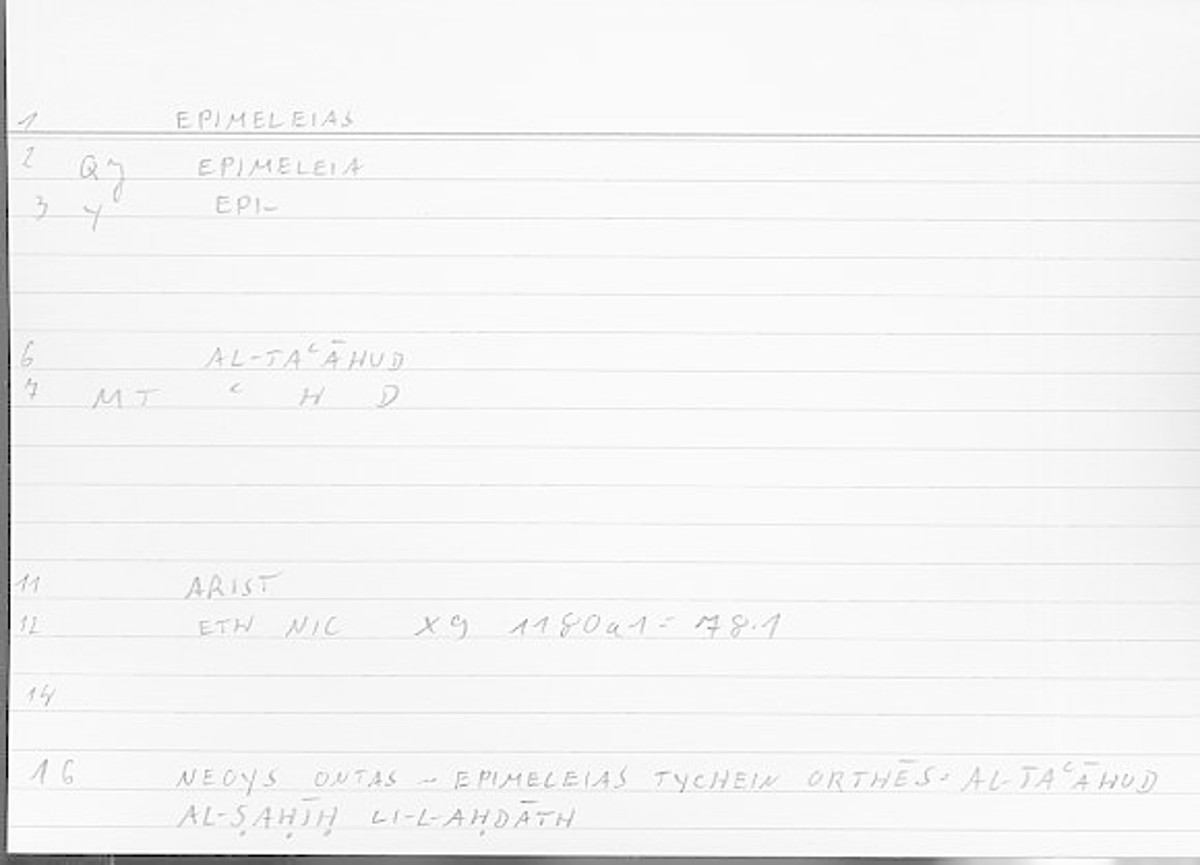 1 EPIMELEIAS
2 Qy EPIMELEIA
3 Y EPI-
6 AL-TAʿĀHUD
7 MT ʿ H D
11 ARIST
12 ETH NIC X9 1180a1 = 78.1
14
16 NEOYS ONTAS – EPIMELEIAS TYCHEIN ORTHĒS · AL-TAʿĀHUD
AL-ṢAḤĪḤ LI-L-AḤDĀTH